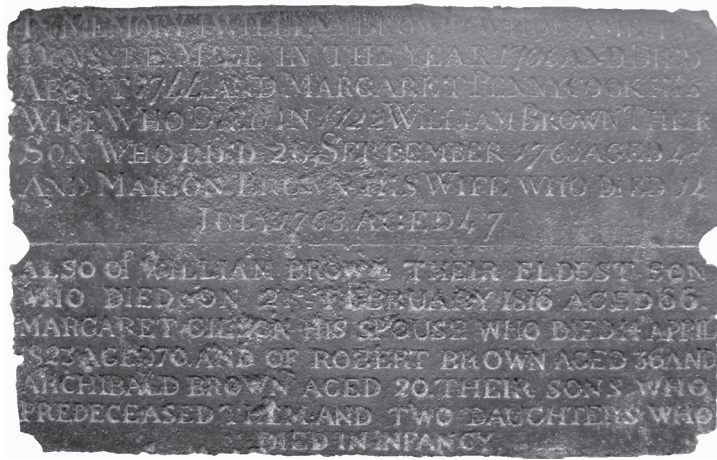 IN MEMORY WILLIAM BROWN WHO CAME TO
MILL IN THE YEAR AND DIED
ABOUT AND MARGARET PENNYCOOK HIS
WIFE WHO DIED IN 1722 WILLIAM BROWN THER
SON WHO DIED SEPTEMBER AGED
AND MARION BROWN HIS WIFE WHO DIED 14
JULY 1768 AGED 47
ALSO Of WILLIAM BROWN THEIR ELDEST SON
WHO DIED ON 21ST FEBRUARY 1816 AGED 66
MARGARET HIS SPOUSE WHO DIED 14 APRIL
1823 AGED 70 AND OF ROBERT BROWN AGED 36 AND
ARCHIBALD BROWN AGED 20. THEIR SONS WHO
PREDECEASED THEM AND TWO DAUGHTERS WHO
DIED IN INFANCY